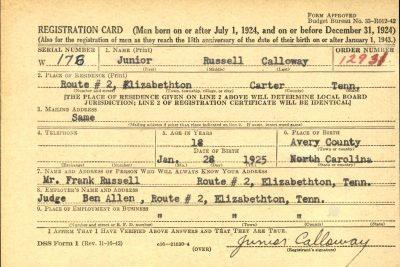 FORM APPROVED
Budget Bureau No. 33-R012-42
REGISTRATION CARD (Men born on or after July 1, 1924, and on or before December 31, 1924)
(Also for the registration of men as they reach the 18th anniversary of the date of their birth on or after January 1, 1943.)
SERIAL NUMBER 1. NAME (Print) ORDER NUMBER
W 176 Junior Russell Calloway 12931
2. PLACE OF RESIDENCE (Print)
Route # 2, Elizabethton Carter Tenn.
(Number and street) (Town, township, village, or city) (County) (State)
[THE PLACE OF RESIDENCE GIVEN ON LINE 2 ABOVE WILL DETERMINE LOCAL BOARD
JURISDICTION; LINE 2 OF REGISTRATION CERTIFICATE WILL BE IDENTICAL]
3. MAILING ADDRESS
Same
(Mailing address if other than place indicated on line 2. If same, insert word same)
4. TELEPHONE 5. AGE IN YEARS 6. PLACE OF BIRTH
18 Avery County
DATE OF BIRTH (Town or county)
Jan. 28 1925 North Carolina
(Exchange) (Number) (Mo.) (Day) (Yr.) (State or country)
7. NAME AND ADDRESS OF PERSON WHO WILL ALWAYS KNOW YOUR ADDRESS
Mr. Frank Russell Route # 2, Elizabethton, Tenn.
8. EMPLOYER'S NAME AND ADDRESS
Judge Ben Allen , Route # 2, Elizabethton, Tenn.
9. PLACE OF EMPLOYMENT OR BUSINESS
" " "
(Number and street or R. F. D. number) (Town) (County) (State)
I AFFIRM THAT I HAVE VERIFIED ABOVE ANSWERS AND THAT THEY ARE TRUE.
DSS Form 1 (Rev. 11-16-42) (OVER) Junior Calloway
(Registrant's signature)